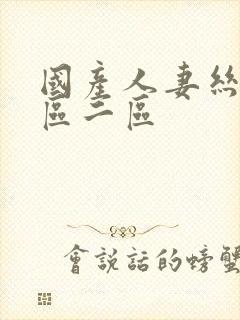 國產人妻絲
區二區
會說話的螃蟹